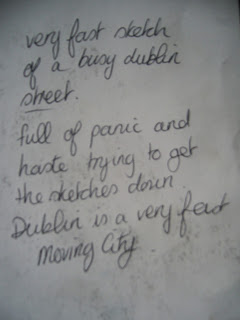 very fast sketch
of a busy dublin
street.
full of panic and
haste trying to get
the sketches down.
Dublin is a very fast
moving City.